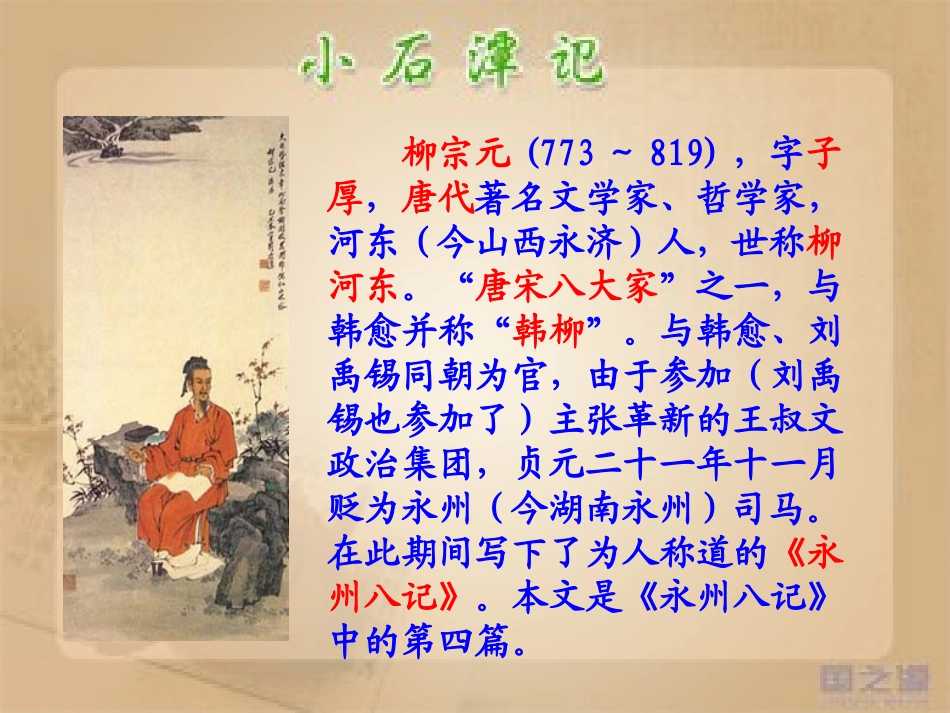 小石潭记
柳宗元 (773 ~ 819) ，字子
厚，唐代著名文学家、哲学家，
河东（今山西永济）人，世称柳
河东。“唐宋八大家”之一，与
韩愈并称“韩柳”。与韩愈、刘
禹锡同朝为官，由于参加（刘禹
锡也参加了）主张革新的王叔文
政治集团，贞元二十一年十一月
贬为永州（今湖南永州）司马。
在此期间写下了为人称道的《永
州八记》。本文是《永州八记》
中的第四篇。